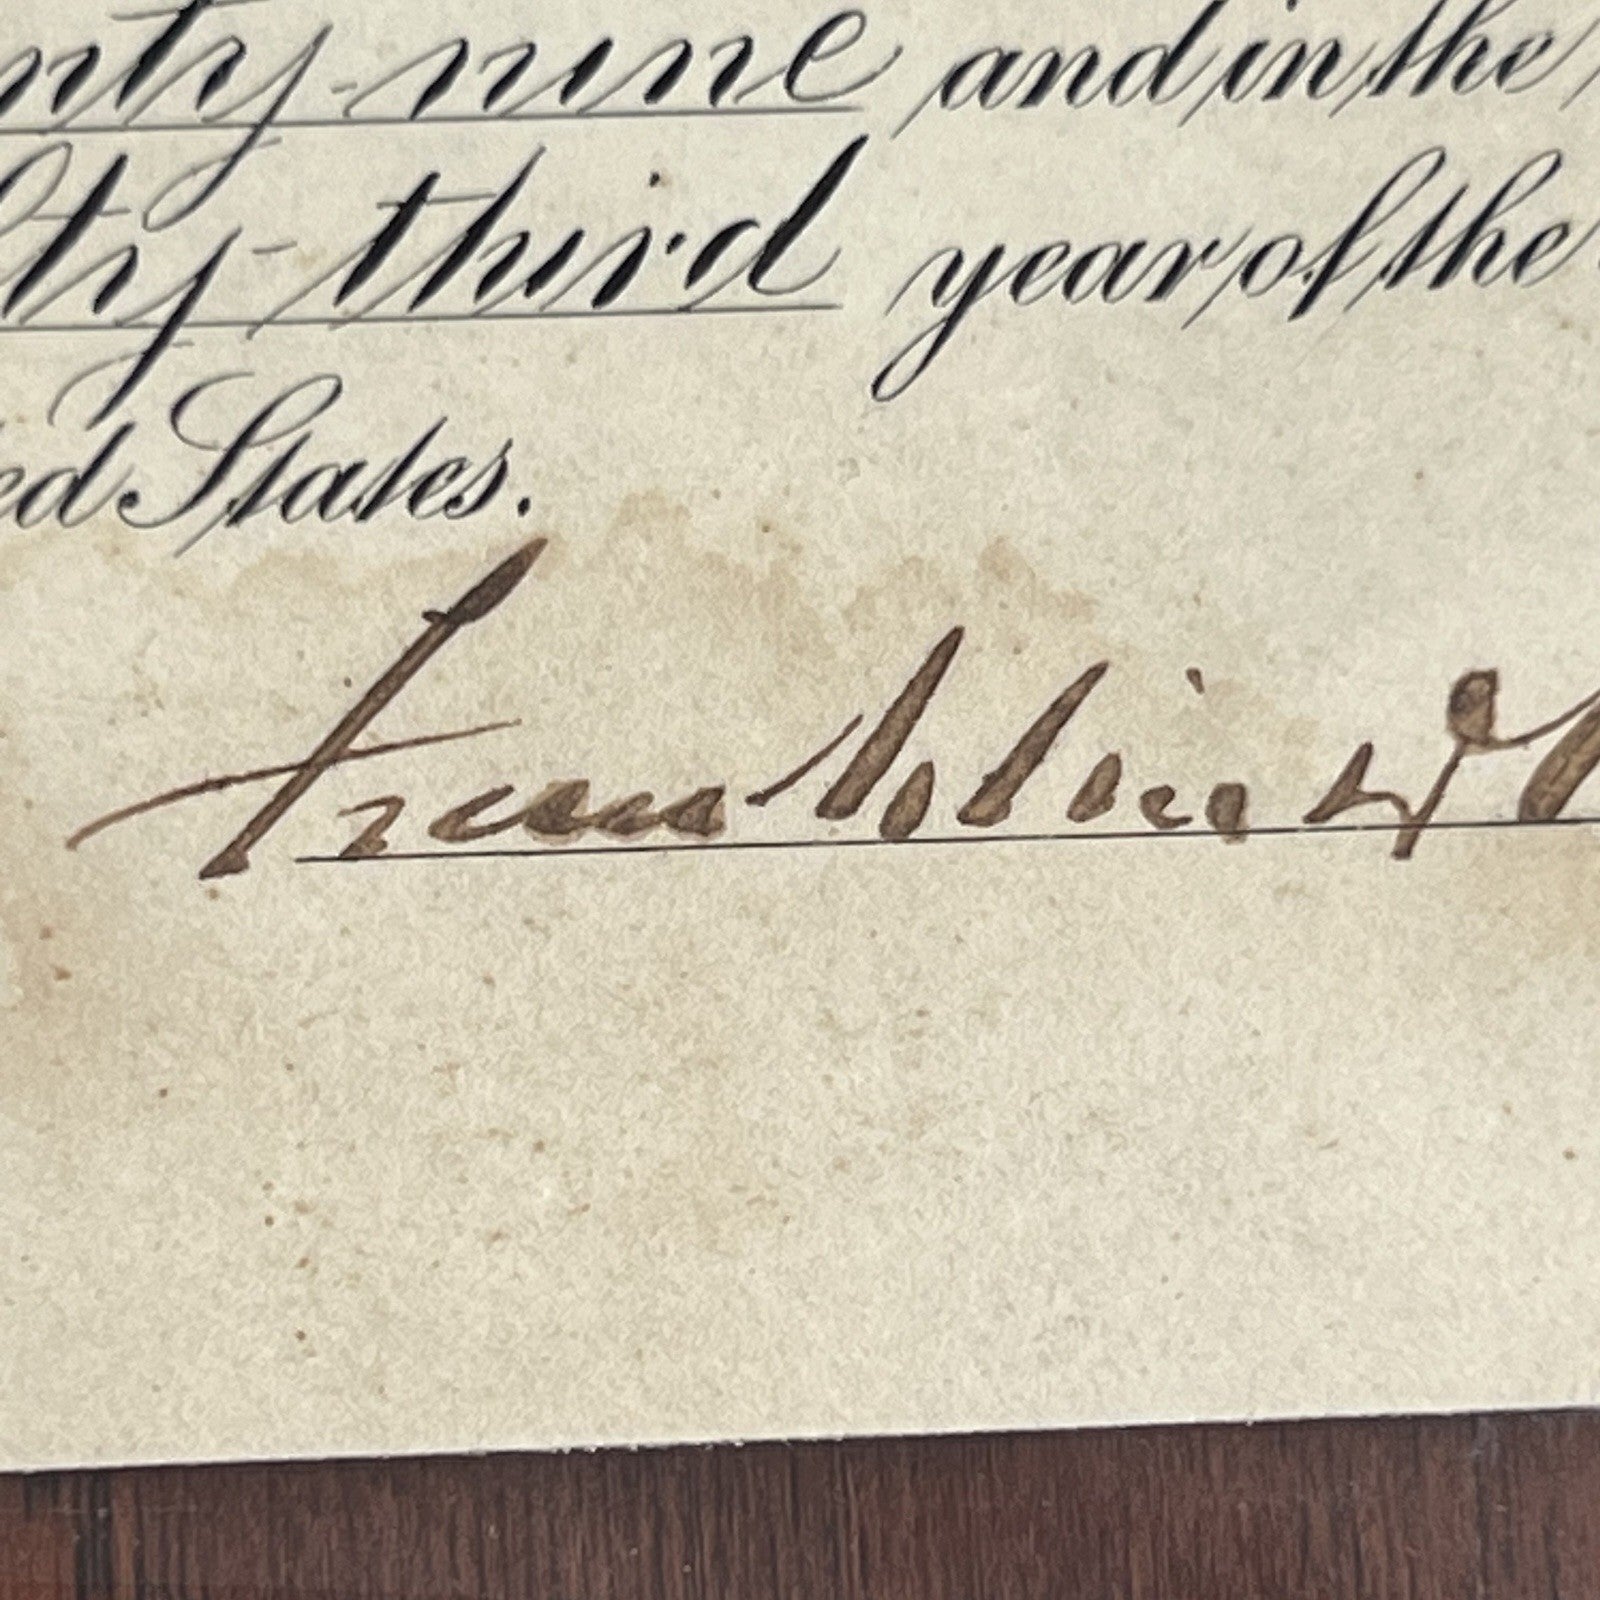 nty-nine and in the
fty-third year of the
ed States.
Franklin